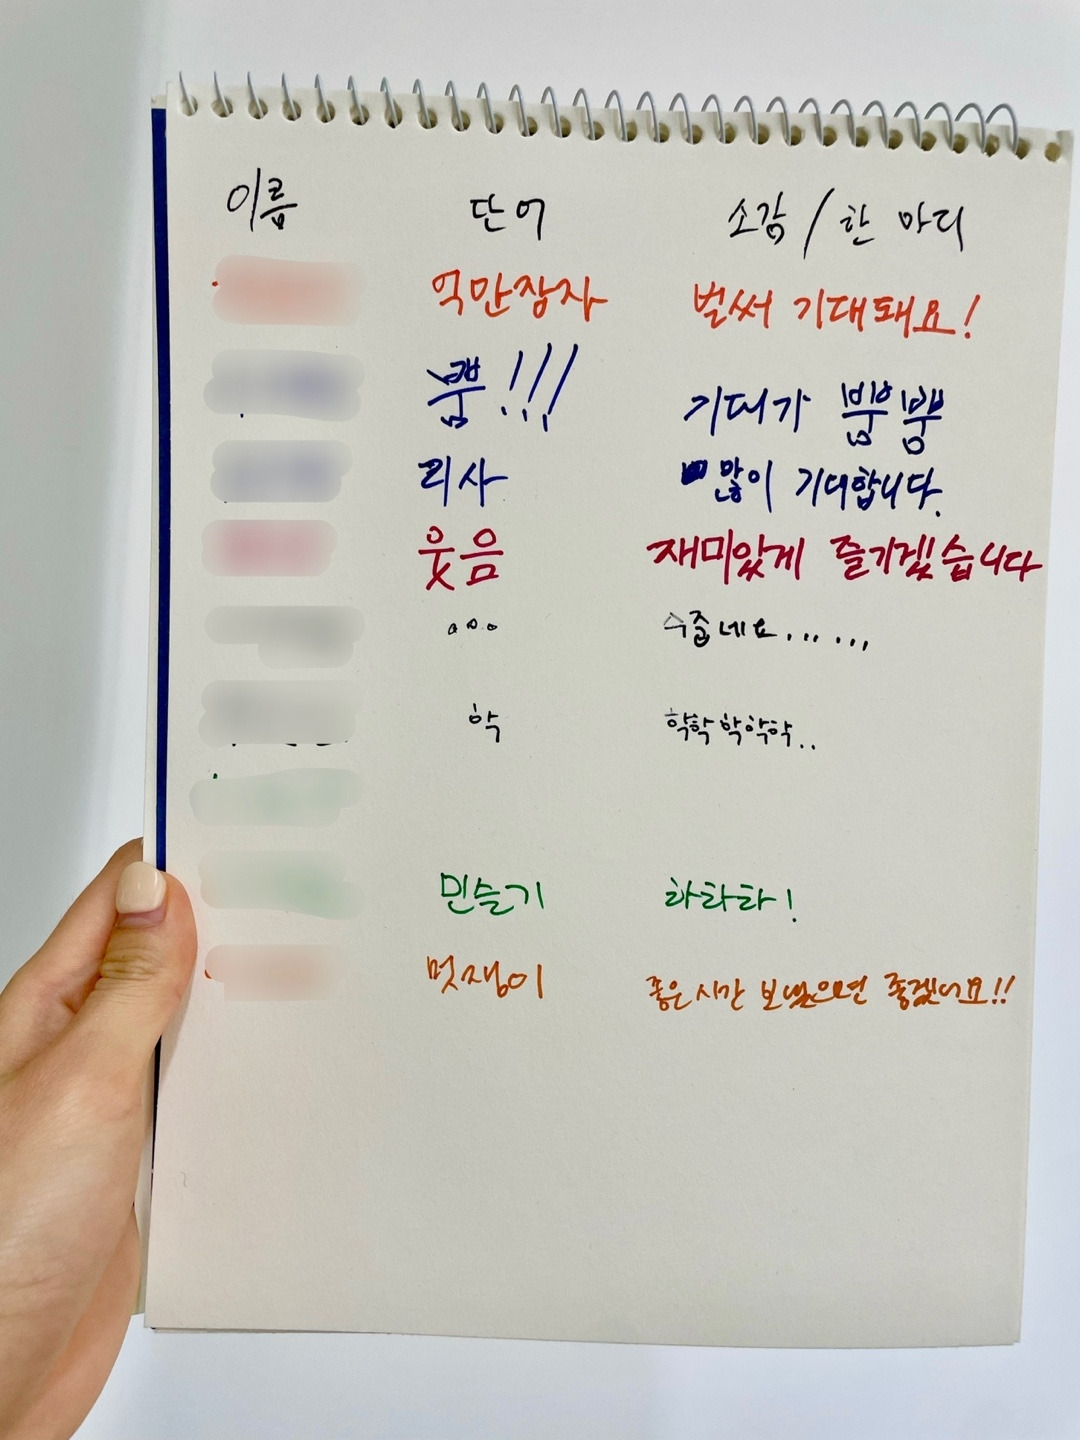 이름 단어 소감 / 한 마디
억만장자 벌써 기대돼요!
뿜!!! 기대가 뿜뿜
리사 많이 기대합니다.
웃음 재미있게 즐기겠습니다
... 수줍네요......
학 학학학학학..
민슬기 하하하!
멋쟁이 좋은 시간 보냈으면 좋겠네요!!